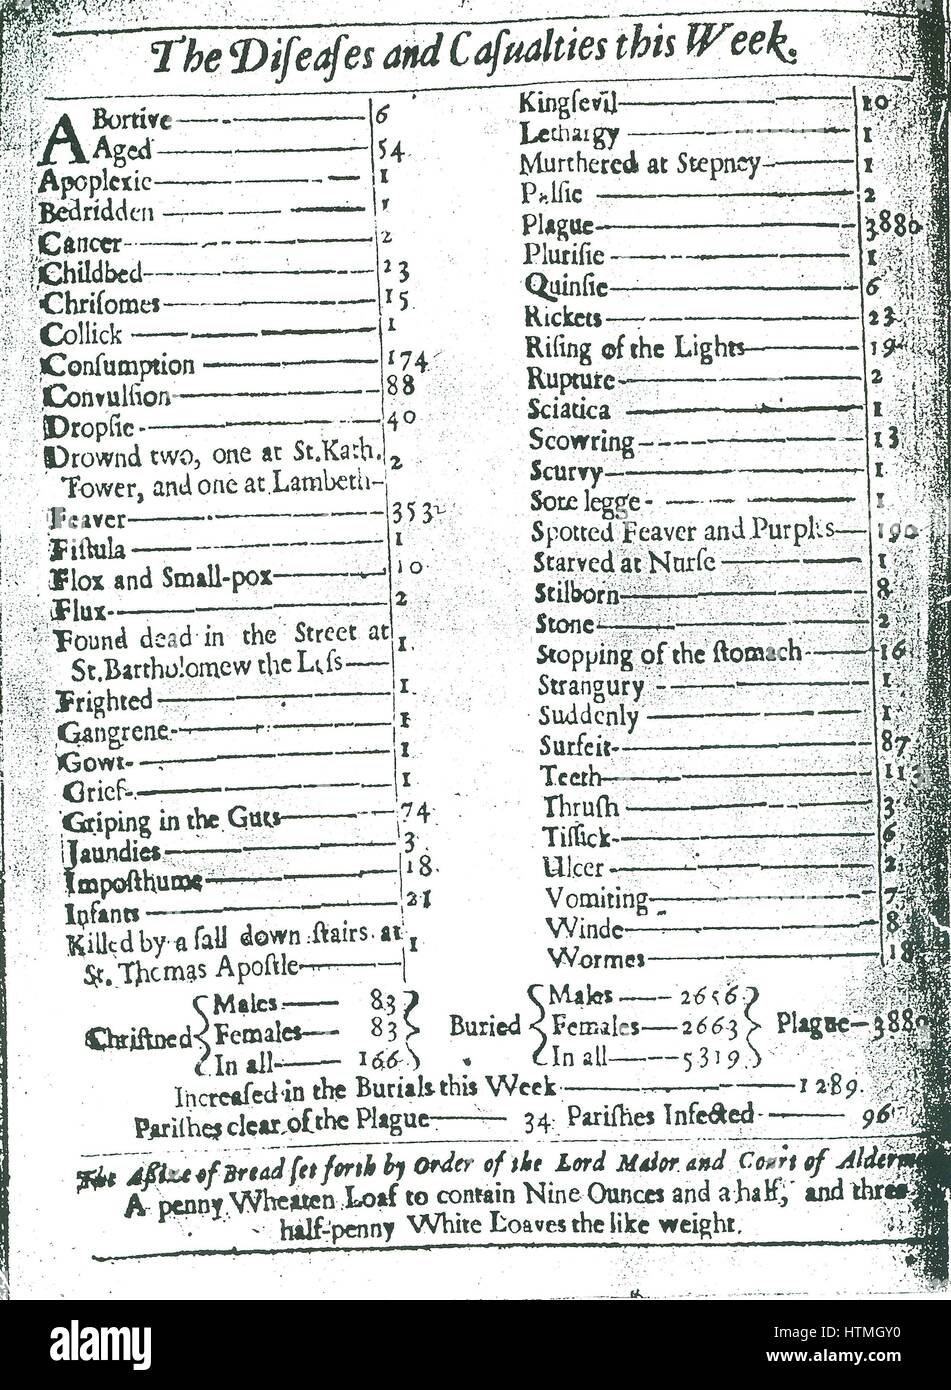 The Diſeaſes and Caſualties this Week.
ABortive 6
Aged 54
Apoplexie 1
Bedridden 1
Cancer 2
Childbed 23
Chriſomes 15
Collick 1
Conſumption 174
Convulſion 88
Dropſie 40
Drownd two, one at St. Kath.
Tower, and one at Lambeth 2
Feaver 353
Fiſtula 1
Flox and Small-pox 10
Flux 2
Found dead in the Street at
St. Bartholomew the Leſs 1
Frighted 1
Gangrene 1
Gowt 1
Grief 1
Griping in the Guts 74
Jaundies 3
Impoſthume 18
Infants 21
Killed by a fall down ſtairs at
St. Thomas Apoſtle 1
Kingſevil 10
Lethargy 1
Murthered at Stepney 1
Palſie 2
Plague 3880
Pluriſie 1
Quinſie 6
Rickets 23
Riſing of the Lights 19
Rupture 2
Sciatica 1
Scowring 13
Scurvy 1
Sore legge 1
Spotted Feaver and Purples 190
Starved at Nurſe 1
Stilborn 8
Stone 2
Stopping of the ſtomach 16
Strangury 1
Suddenly 1
Surfeit 87
Teeth 113
Thruſh 3
Tiſſick 6
Ulcer 2
Vomiting 7
Winde 8
Wormes 18
Chriſtned Males 83 Females 83 In all 166
Buried Males 2656 Females 2663 In all 5319
Plague 3880
Increaſed in the Burials this Week 1289.
Pariſhes clear of the Plague 34 Pariſhes Infected 96
The Aſſize of Bread ſet forth by Order of the Lord Maior and Court of Alderme
A penny Wheaten Loaf to contain Nine Ounces and a half, and three
half-penny White Loaves the like weight.
alamy
Image ID: HTMGY0
www.alamy.com